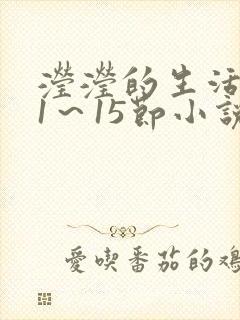 瀅瀅的生活
1～15節小説
愛喫番茄的鴻